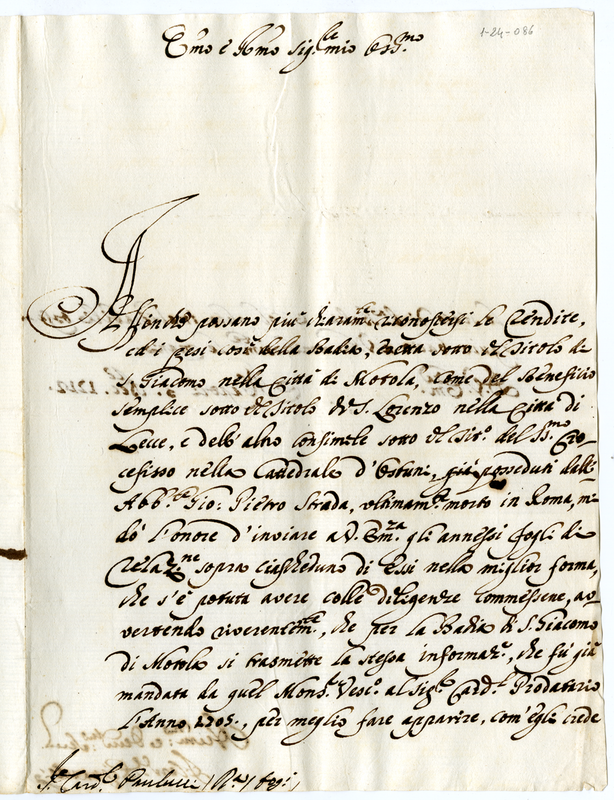 1-24-086
Emo e Rmo Sig.re mio Oss.mo
Affinche possano più chiaram.te riconoscersi le Rendite,
ed i pesi così della Badia, eretta sotto il Titolo di
S. Giacomo nella Città di Motola, come del Beneficio
semplice sotto il Titolo di S. Lorenzo nella Città di
Lecce, e dell'altro consimile sotto il Tit.o del SS.mo Cro-
cefisso nella Cattedrale d'Ostuni, già posseduti dall'
Abb.e Gio: Pietro Strada, ultimam.te morto in Roma, mi
dò l'onore d'inviare a V. Em.za gli annessi fogli di
Relaz.ne sopra ciascheduno di Essi nella miglior forma,
che s'è potuta avere colle diligenze commessene, av-
vertendo riverentem.te, che per la Badia di S. Giacomo
di Motola si trasmette la stessa informaz.e, che fù già
mandata da quel Mons.r Vesc.o al Sig.r Card.l Prodatario
l'Anno 1705, per meglio fare apparire, com'egli crede
S.r Card.l Paulucci